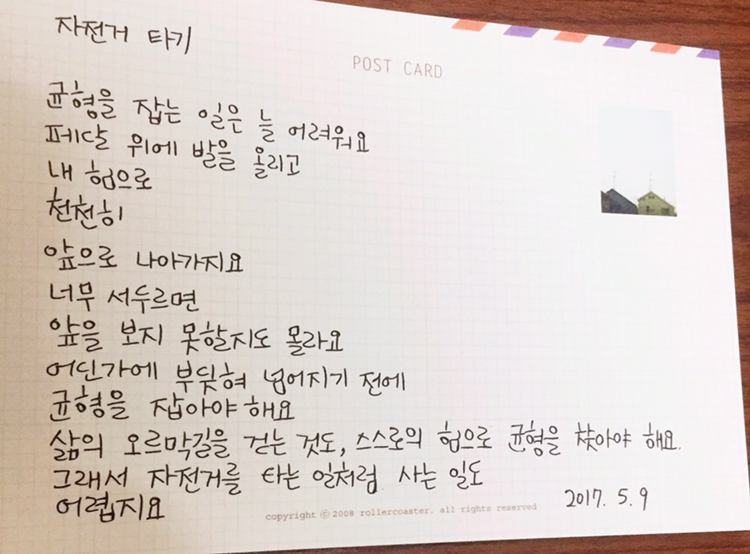 자전거 타기
POST CARD
균형을 잡는 일은 늘 어려워요
페달 위에 발을 올리고
내 힘으로
천천히
앞으로 나아가지요
너무 서두르면
앞을 보지 못할지도 몰라요
어딘가에 부딪혀 넘어지기 전에
균형을 잡아야 해요
삶의 오르막길을 걷는 것도, 스스로의 힘으로 균형을 찾아야 해요.
그래서 자전거를 타는 일처럼 사는 일도
어렵지요
2017. 5. 9
copyright ⓒ 2008 rollercoaster. all rights reserved